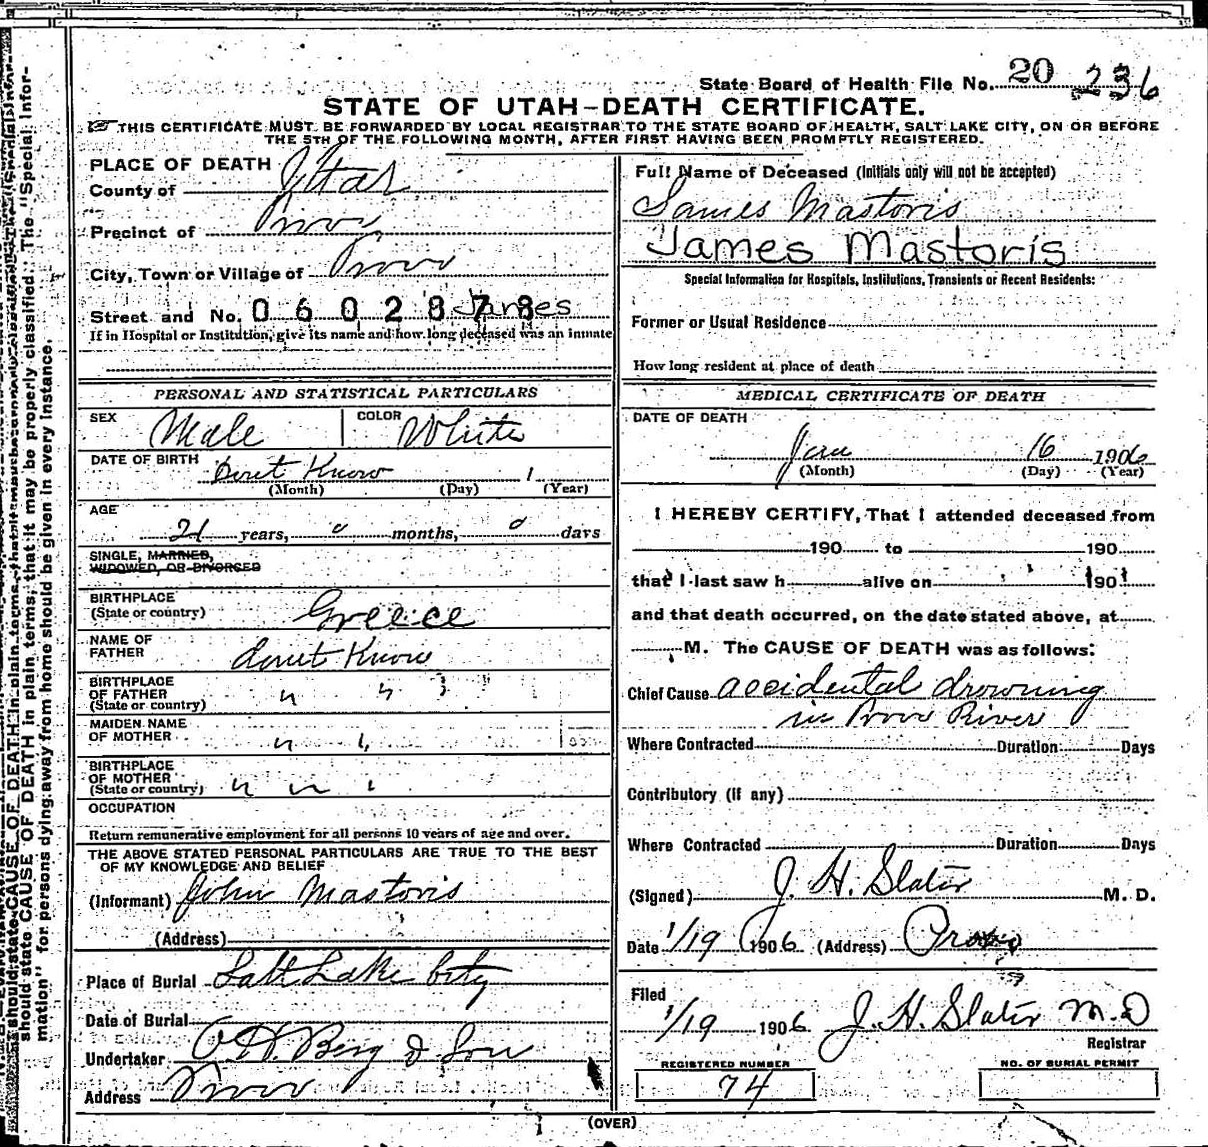 State Board of Health File No. 20 236
STATE OF UTAH-DEATH CERTIFICATE.
THIS CERTIFICATE MUST BE FORWARDED BY LOCAL REGISTRAR TO THE STATE BOARD OF HEALTH, SALT LAKE CITY, ON OR BEFORE
THE 5TH OF THE FOLLOWING MONTH, AFTER FIRST HAVING BEEN PROMPTLY REGISTERED.
PLACE OF DEATH
County of Utah
Precinct of Provo
City, Town or Village of Provo
Street and No. 0602878 James
If in Hospital or Institution, give its name and how long deceased was an inmate
PERSONAL AND STATISTICAL PARTICULARS
SEX Male COLOR White
DATE OF BIRTH Dont Know 1
(Month) (Day) (Year)
AGE
21 years, 0 months, 0 days
SINGLE, MARRIED,
WIDOWED, OR DIVORCED
BIRTHPLACE
(State or country) Greece
NAME OF
FATHER dont Know
BIRTHPLACE
OF FATHER " "
(State or country)
MAIDEN NAME
OF MOTHER " "
BIRTHPLACE
OF MOTHER
(State or country) " " "
OCCUPATION
Return remunerative employment for all persons 10 years of age and over.
THE ABOVE STATED PERSONAL PARTICULARS ARE TRUE TO THE BEST
OF MY KNOWLEDGE AND BELIEF
(Informant) John Mastoris
(Address)
Place of Burial Salt Lake City
Date of Burial
Undertaker O.H. Berg & Son
Address Provo
Full Name of Deceased (Initials only will not be accepted)
James Mastoris
James Mastoris
Special Information for Hospitals, Institutions, Transients or Recent Residents:
Former or Usual Residence
How long resident at place of death
MEDICAL CERTIFICATE OF DEATH
DATE OF DEATH
Jan 16 1906
(Month) (Day) (Year)
I HEREBY CERTIFY, That I attended deceased from
190 to 190
that I last saw h alive on 190
and that death occurred, on the date stated above, at
M. The CAUSE OF DEATH was as follows:
Chief Cause accidental drowning
in Provo River
Where Contracted Duration Days
Contributory (if any)
Where Contracted Duration Days
(Signed) J. H. Slater M. D.
Date 1/19 1906 (Address) Provo
Filed
1/19 1906 J. H. Slater M.D
Registrar
REGISTERED NUMBER
74
NO. OF BURIAL PERMIT
(OVER)
should state CAUSE OF DEATH in plain terms, that it may be properly classified. The "Special Infor-
mation" for persons dying away from home should be given in every instance.